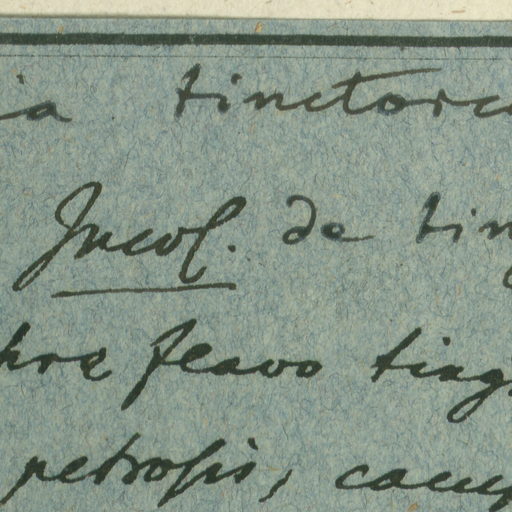 ia tinctoria
Incol. de tin
hre flavo ting
petrosis, camp